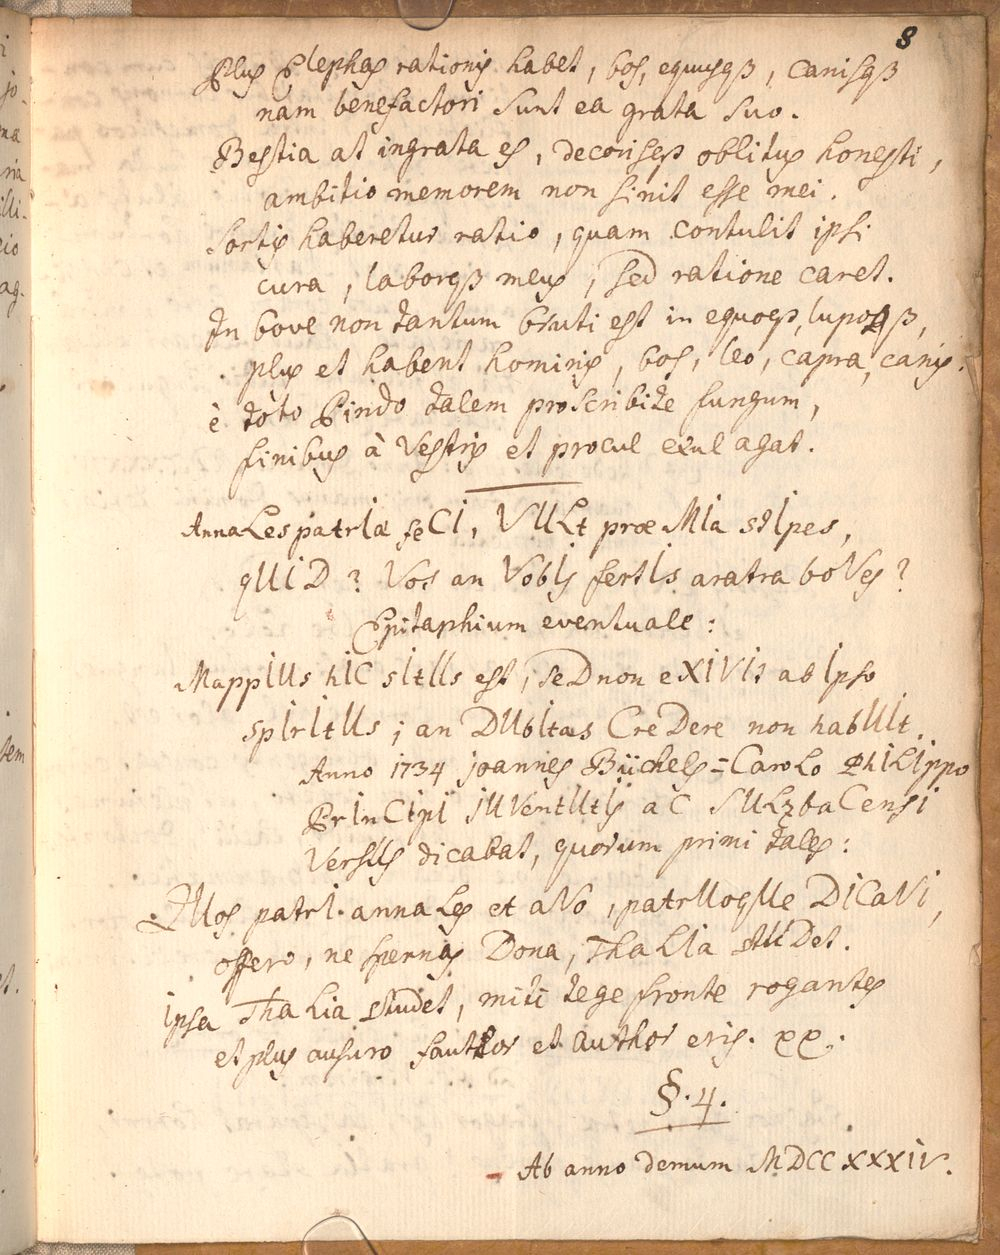 8
Plus Elephas rationis habet, bos, equusqз, canisqз
nam benefactori sunt ea grata suo.
Bestia at ingrata es, decorisqз oblitus honesti,
ambitio memorem non sinit esse mei.
Sortis haberetur ratio, quam contulit ipsi
cura, laborqз meus, sed ratione caret.
In bove non tantum bruti est in equoqз, lupoqз,
plus et habent hominis, bos, leo, capra, canis.
è toto Pindo talem proscribite fungum,
finibus à Vestris et procul exul agat.
AnnaLes patrIæ feCI, VULt proe MIa stIpes,
qUID? Vos an VobIs fertIs aratra boVes?
Epitaphium eventuale:
MappIUs hIC sItUs est, seD non eXIVIt ab Ipso
spIrItUs; an DUbItas CreDere non habUIt.
Anno 1734 joannes Büchels = CaroLo PhILIppo
PrInCIpI IUVentUtIs aC SULzbaCensI
VersUs dicabat, quorum primi tales:
QUos patrI. annaLes et aVo, patrUoqUe DICaVI,
offero, ne spernas Dona, ThaLIa stUDet.
Ipsa ThaLia studet, miti tege fronte rogantes
et plus ausuro fauthor et author eris. xx.
§. 4.
Ab anno demum MDCCXXXIV.